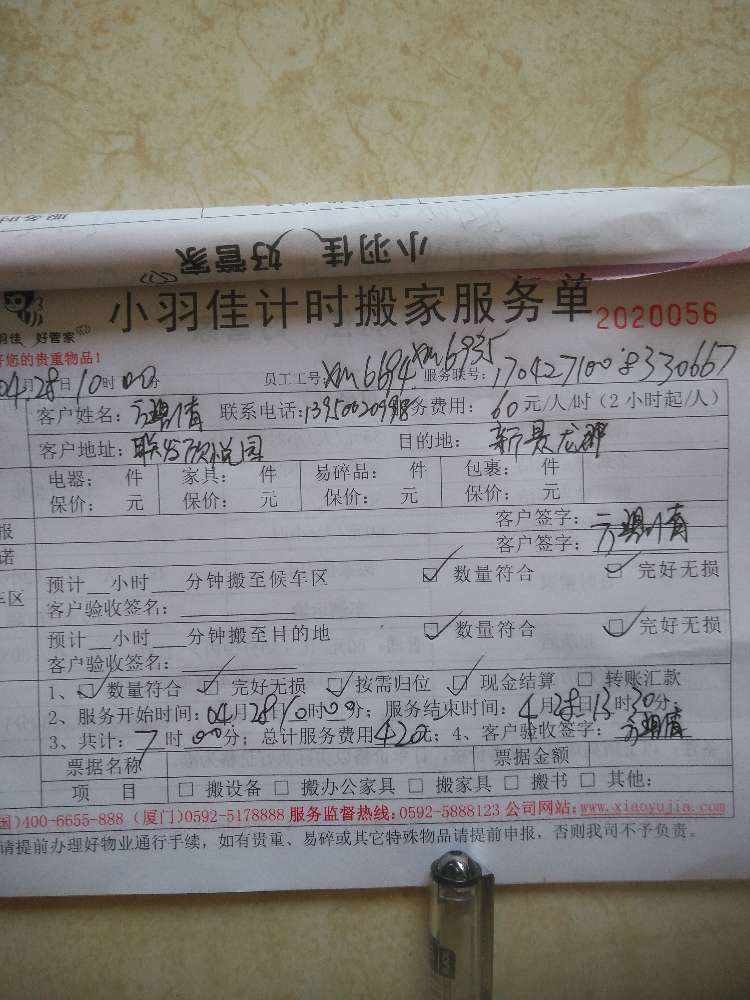 小羽佳 好管家
小羽佳计时搬家服务单 2020056
羽佳 好管家
好您的贵重物品!
04月28日10时00分 员工工号:xm6694 xm6935 服务联号:1704271008330667
客户姓名: 联系电话:13950020998 服务费用: 60元/人/时(2小时起/人)
客户地址:联发欣悦园 目的地: 新景龙郡
电器: 件 家具: 件 易碎品: 件 包裹: 件
保价: 元 保价: 元 保价: 元 保价: 元
报 客户签字:
诺 客户签字:
预计__小时___分钟搬至候车区 ☑ 数量符合 ☑ 完好无损
车区 客户验收签名:
预计__小时___分钟搬至目的地 ☑ 数量符合 ☑ 完好无损
客户验收签名:
1、☑ 数量符合 ☑ 完好无损 ☑ 按需归位 ☑ 现金结算 □ 转账汇款
2、服务开始时间:04月28日10时00分;服务结束时间:4月28日13时30分;
3、共计:7时00分;总计服务费用420元;4、客户验收签字:
票据名称 票据金额
项 目 □ 搬设备 □ 搬办公家具 □ 搬家具 □ 搬书 □ 其他:
国)400-6655-888 (厦门)0592-5178888 服务监督热线:0592-5888123 公司网站:www.xiaoyujia.com
请提前办理好物业通行手续,如有贵重、易碎或其它特殊物品请提前申报,否则我司不予负责。